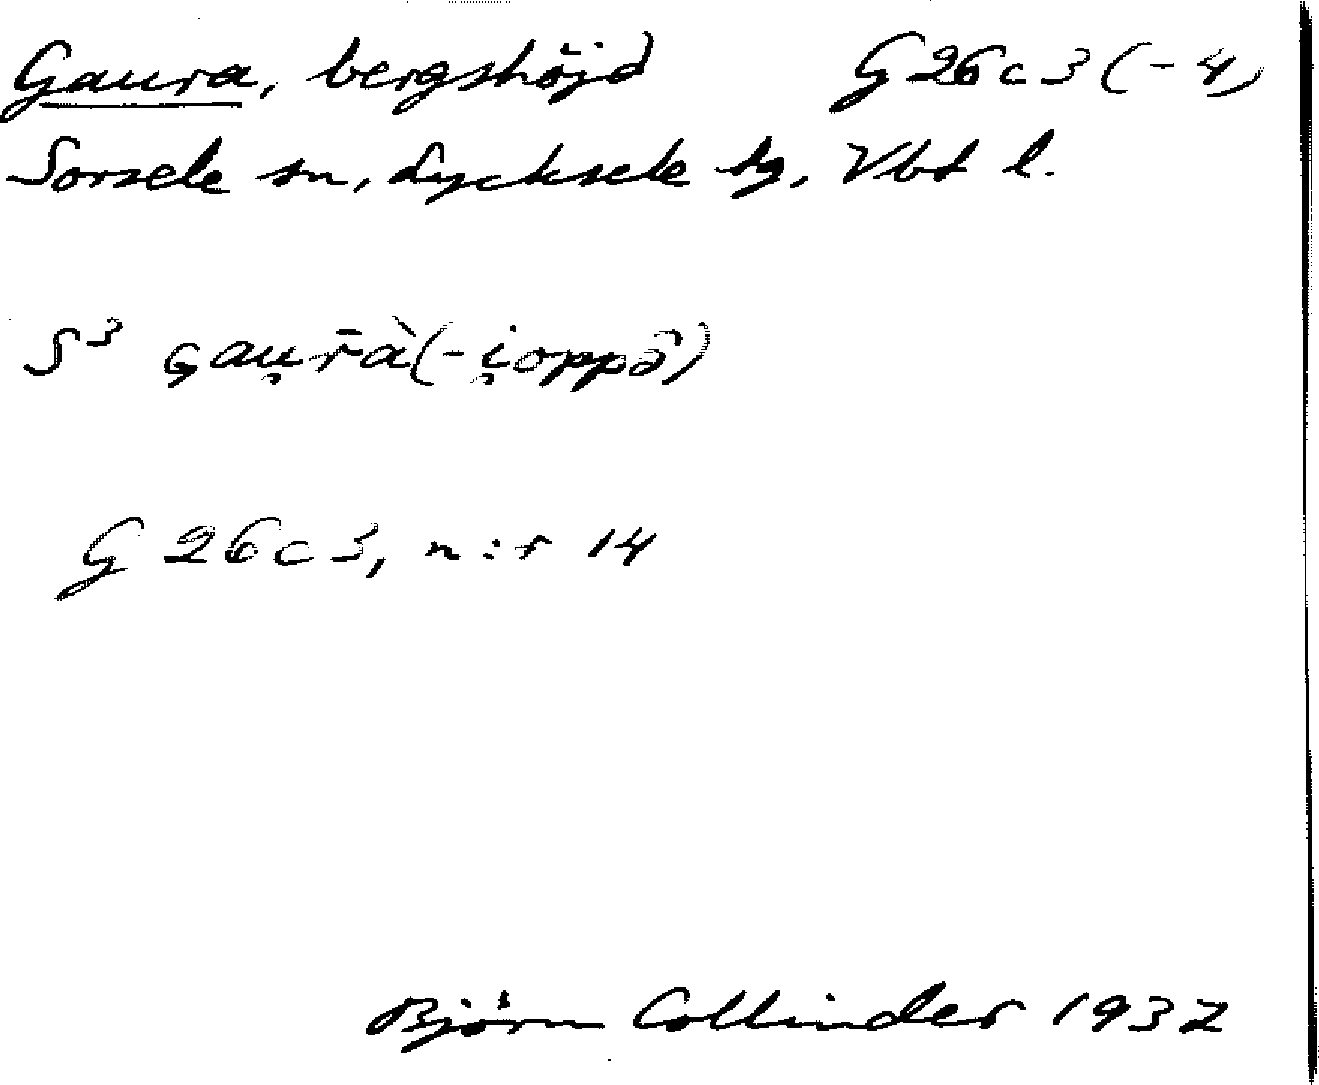 Gaura, bergshöjd G26c3(-4)
Sorsele sn, Lycksele tg, Vbt l.
S³ G̨au̯r̄à(-i̯oppə̄)
G 26c3, n:r 14
Björn Collinder 1937